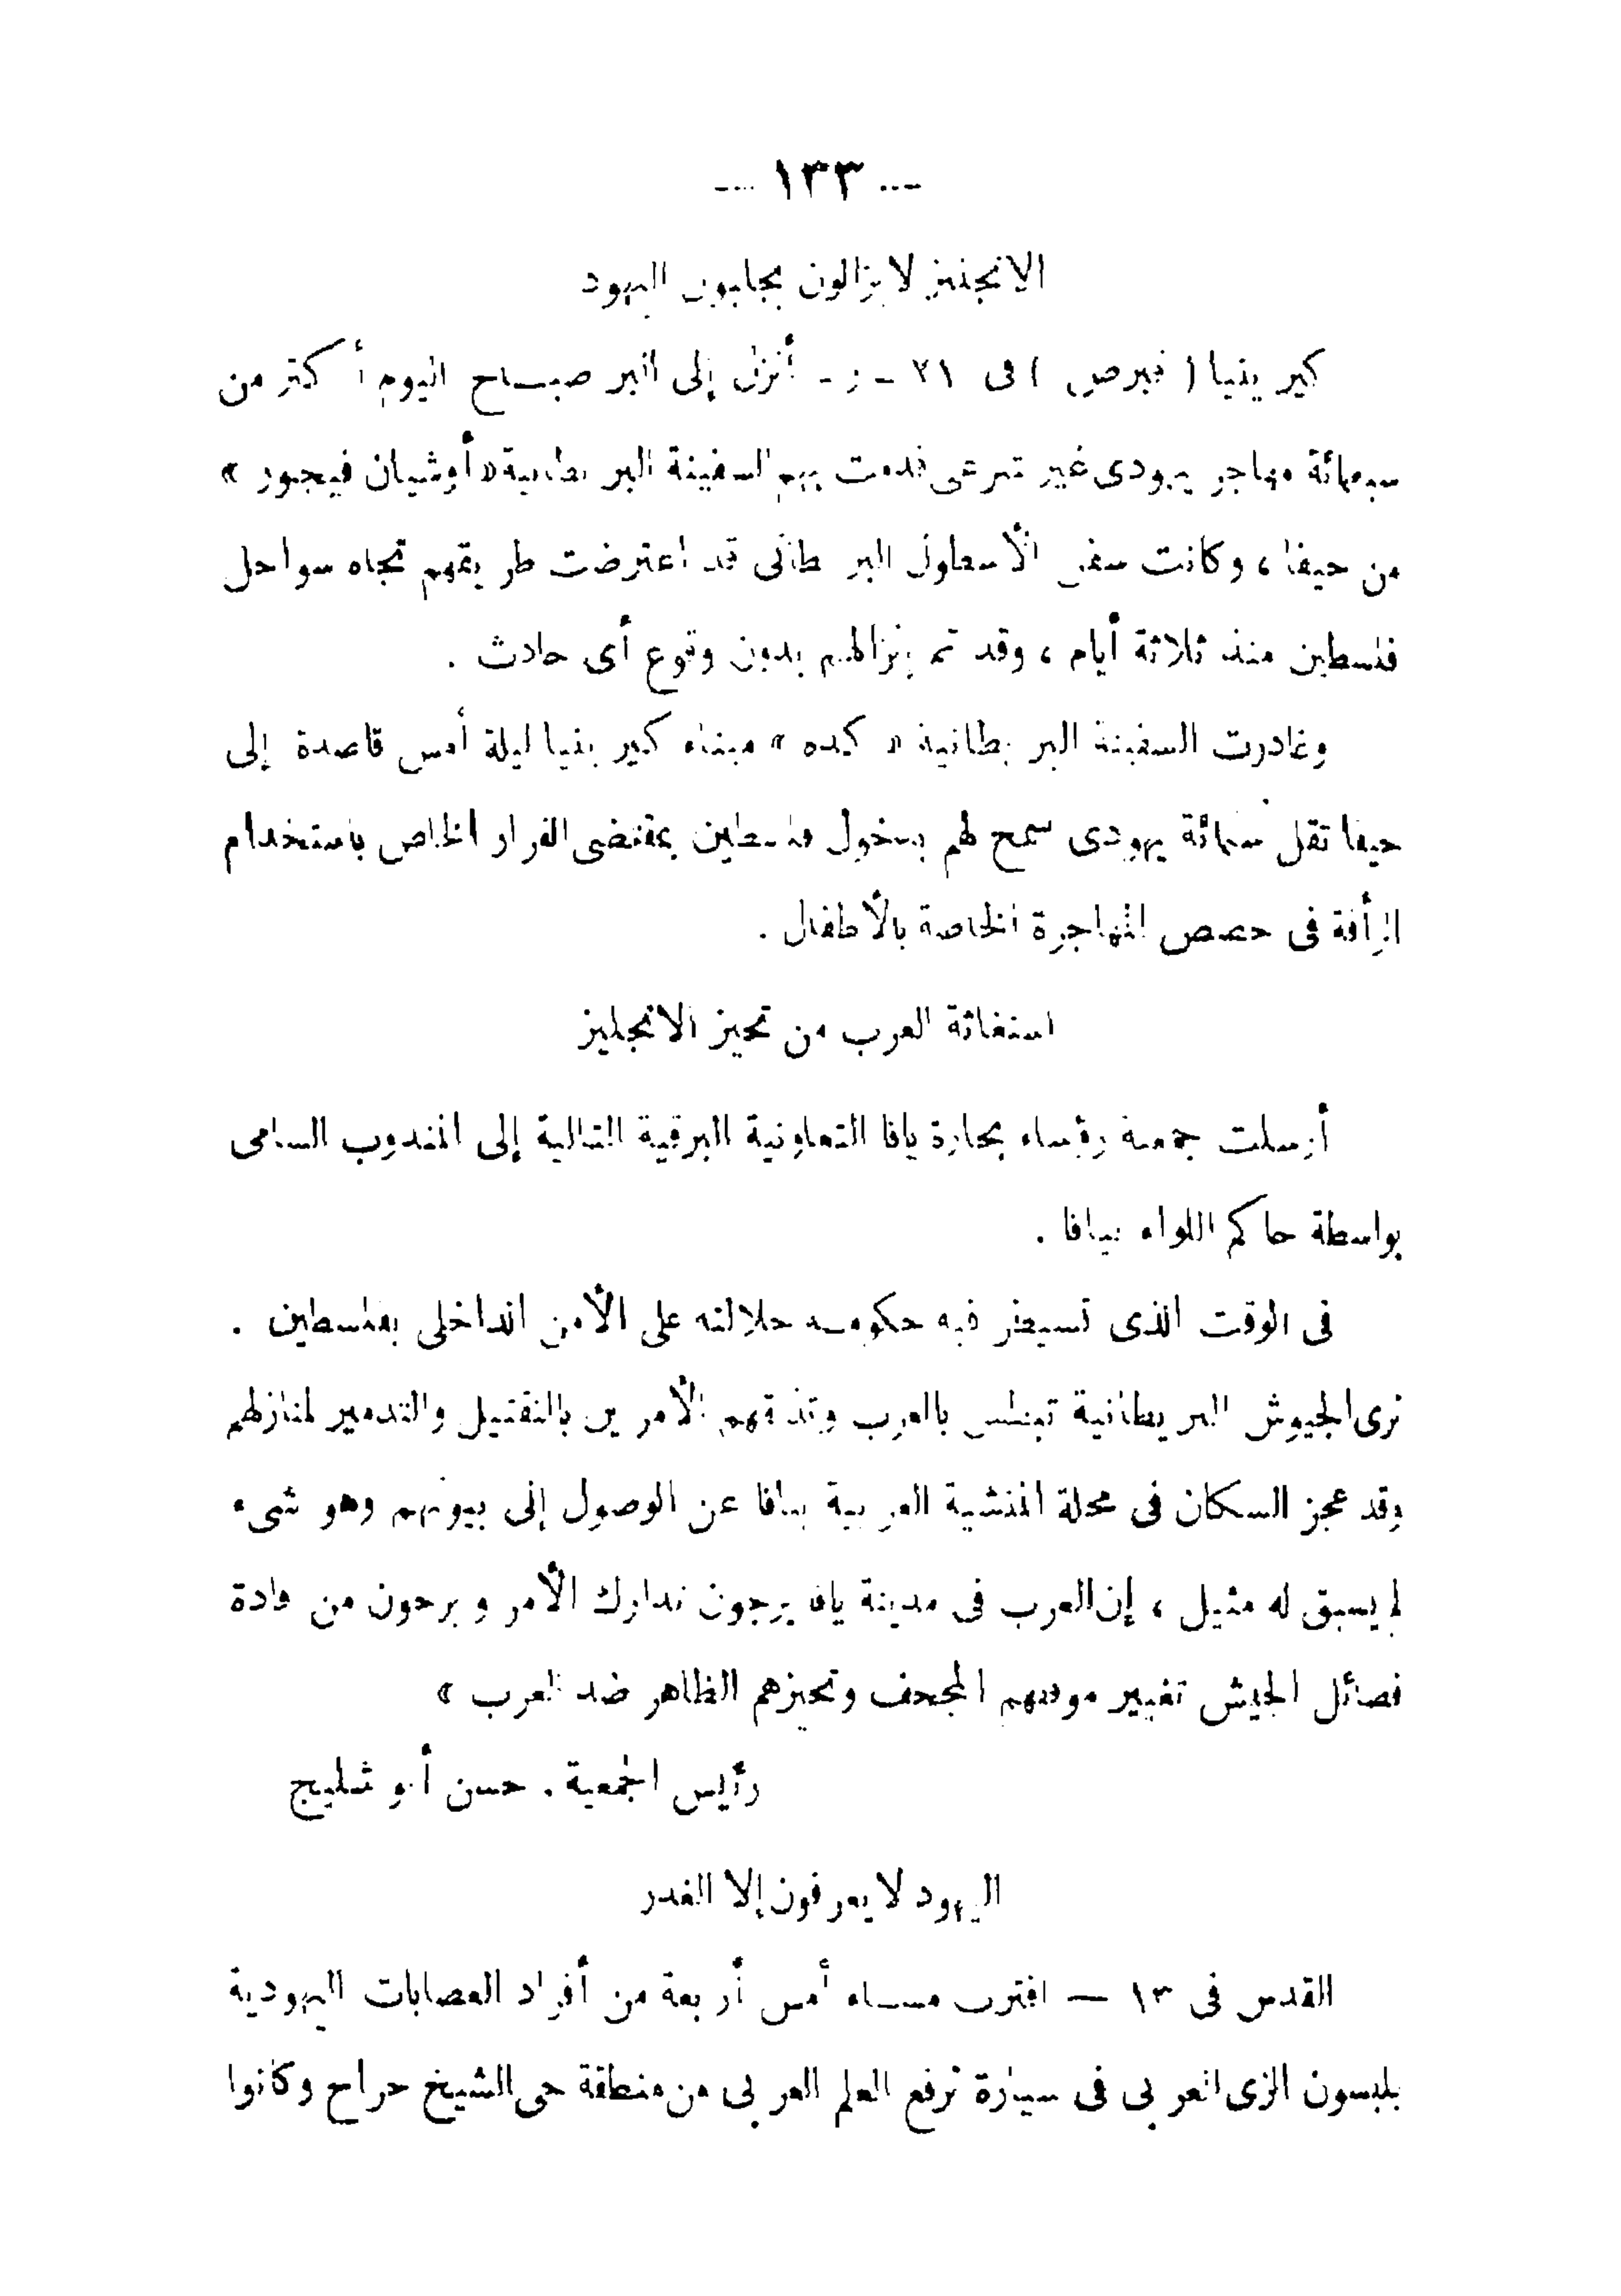 --- ١٣٣ ---
الانجليز لا يزالون يحابون اليهود
كيرينيا ( قبرص ) فى ٢١ - ر - أنزل إلى البر صباح اليوم أكثر من
سبعمائة مهاجر يهودى غير شرعى قدمت بهم السفينة البريطانية « أوشيان فيجور »
من حيفا ، وكانت سفن الأسطول البريطانى قد اعترضت طريقهم تجاه سواحل
فلسطين منذ ثلاثة أيام ، وقد تم إنزالهم بدون وقوع أى حادث .
وغادرت السفينة البريطانية « كده » ميناء كيرينيا ليلة أمس قاصدة إلى
حيفا تقل يهودى سمح لهم بدخول فلسطين بمقتضى القرار الخاص باستخدام
الرأفة فى حصص المهاجرة الخاصة بالأطفال .
استغاثة العرب من تحيز الانجليز
أرسلت جمعية رؤساء بحارة يافا التعاونية البرقية التالية إلى المندوب السامى
بواسطة حاكم اللواء بيافا .
فى الوقت الذى تسيطر فيه حكومة جلالته على الأمن الداخلى بفلسطين .
نرى الجيوش البريطانية تبطش بالعرب وتذيقهم الأمرين بالتقتيل والتدمير لمنازلهم
وقد عجز السكان فى محلة المنشية العربية بيافا عن الوصول إلى بيوتهم وهو شىء
لم يسبق له مثيل ، إن العرب فى مدينة يافا يرجون تدارك الأمر ويرجون من قادة
فصائل الجيش تغيير موقفهم المجحف وتحيزهم الظاهر ضد العرب »
رئيس الجمعية . حسن أبو شليح
اليهود لا يعرفون إلا الغدر
القدس فى ١٣ — اقترب مساء أمس أربعة من أفراد العصابات اليهودية
يلبسون الزى العربى فى سيارة ترفع العلم العربى من منطقة حى الشيخ جراح وكانوا